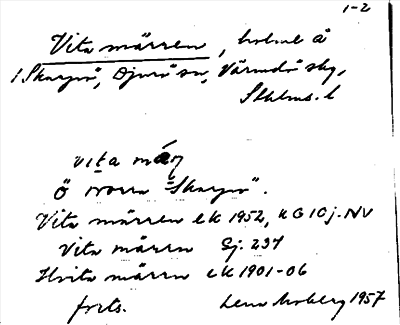 1-2
Vita märren, holme å
i Skarpö, Djurö sn, Värmdö skg,
Sthlms. l
vita mär
Ö norra Skarpö".
Vita märren ek 1952, KG 10j. NV
Vita märrn Gj. 237
Hvita märrn ek 1901-06
forts. Lena Moberg 1957